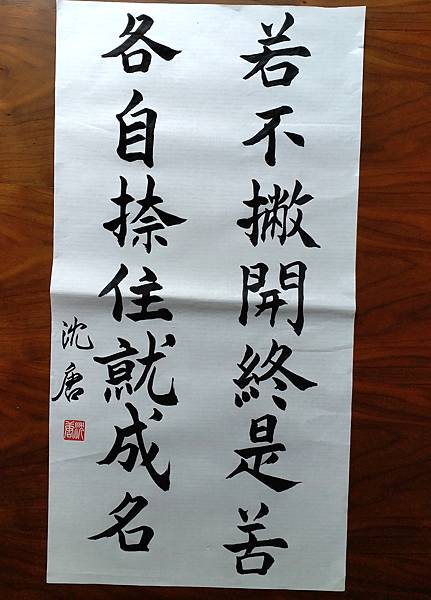 若不撇開終是苦
各自捺住就成名
沈唐